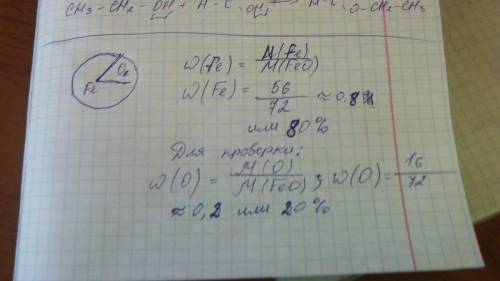 CH₃-CH₂-OH + H-C OH H-C O-CH₂-CH₃
O₂
Fe
W(Fe) = M(Fe) / M(FeO)
W(Fe) = 56 / 72 ≈ 0,8
или 80%
Для проверки:
W(O) = M(O) / M(FeO) ; W(O) = 16 / 72
≈ 0,2 или 20%